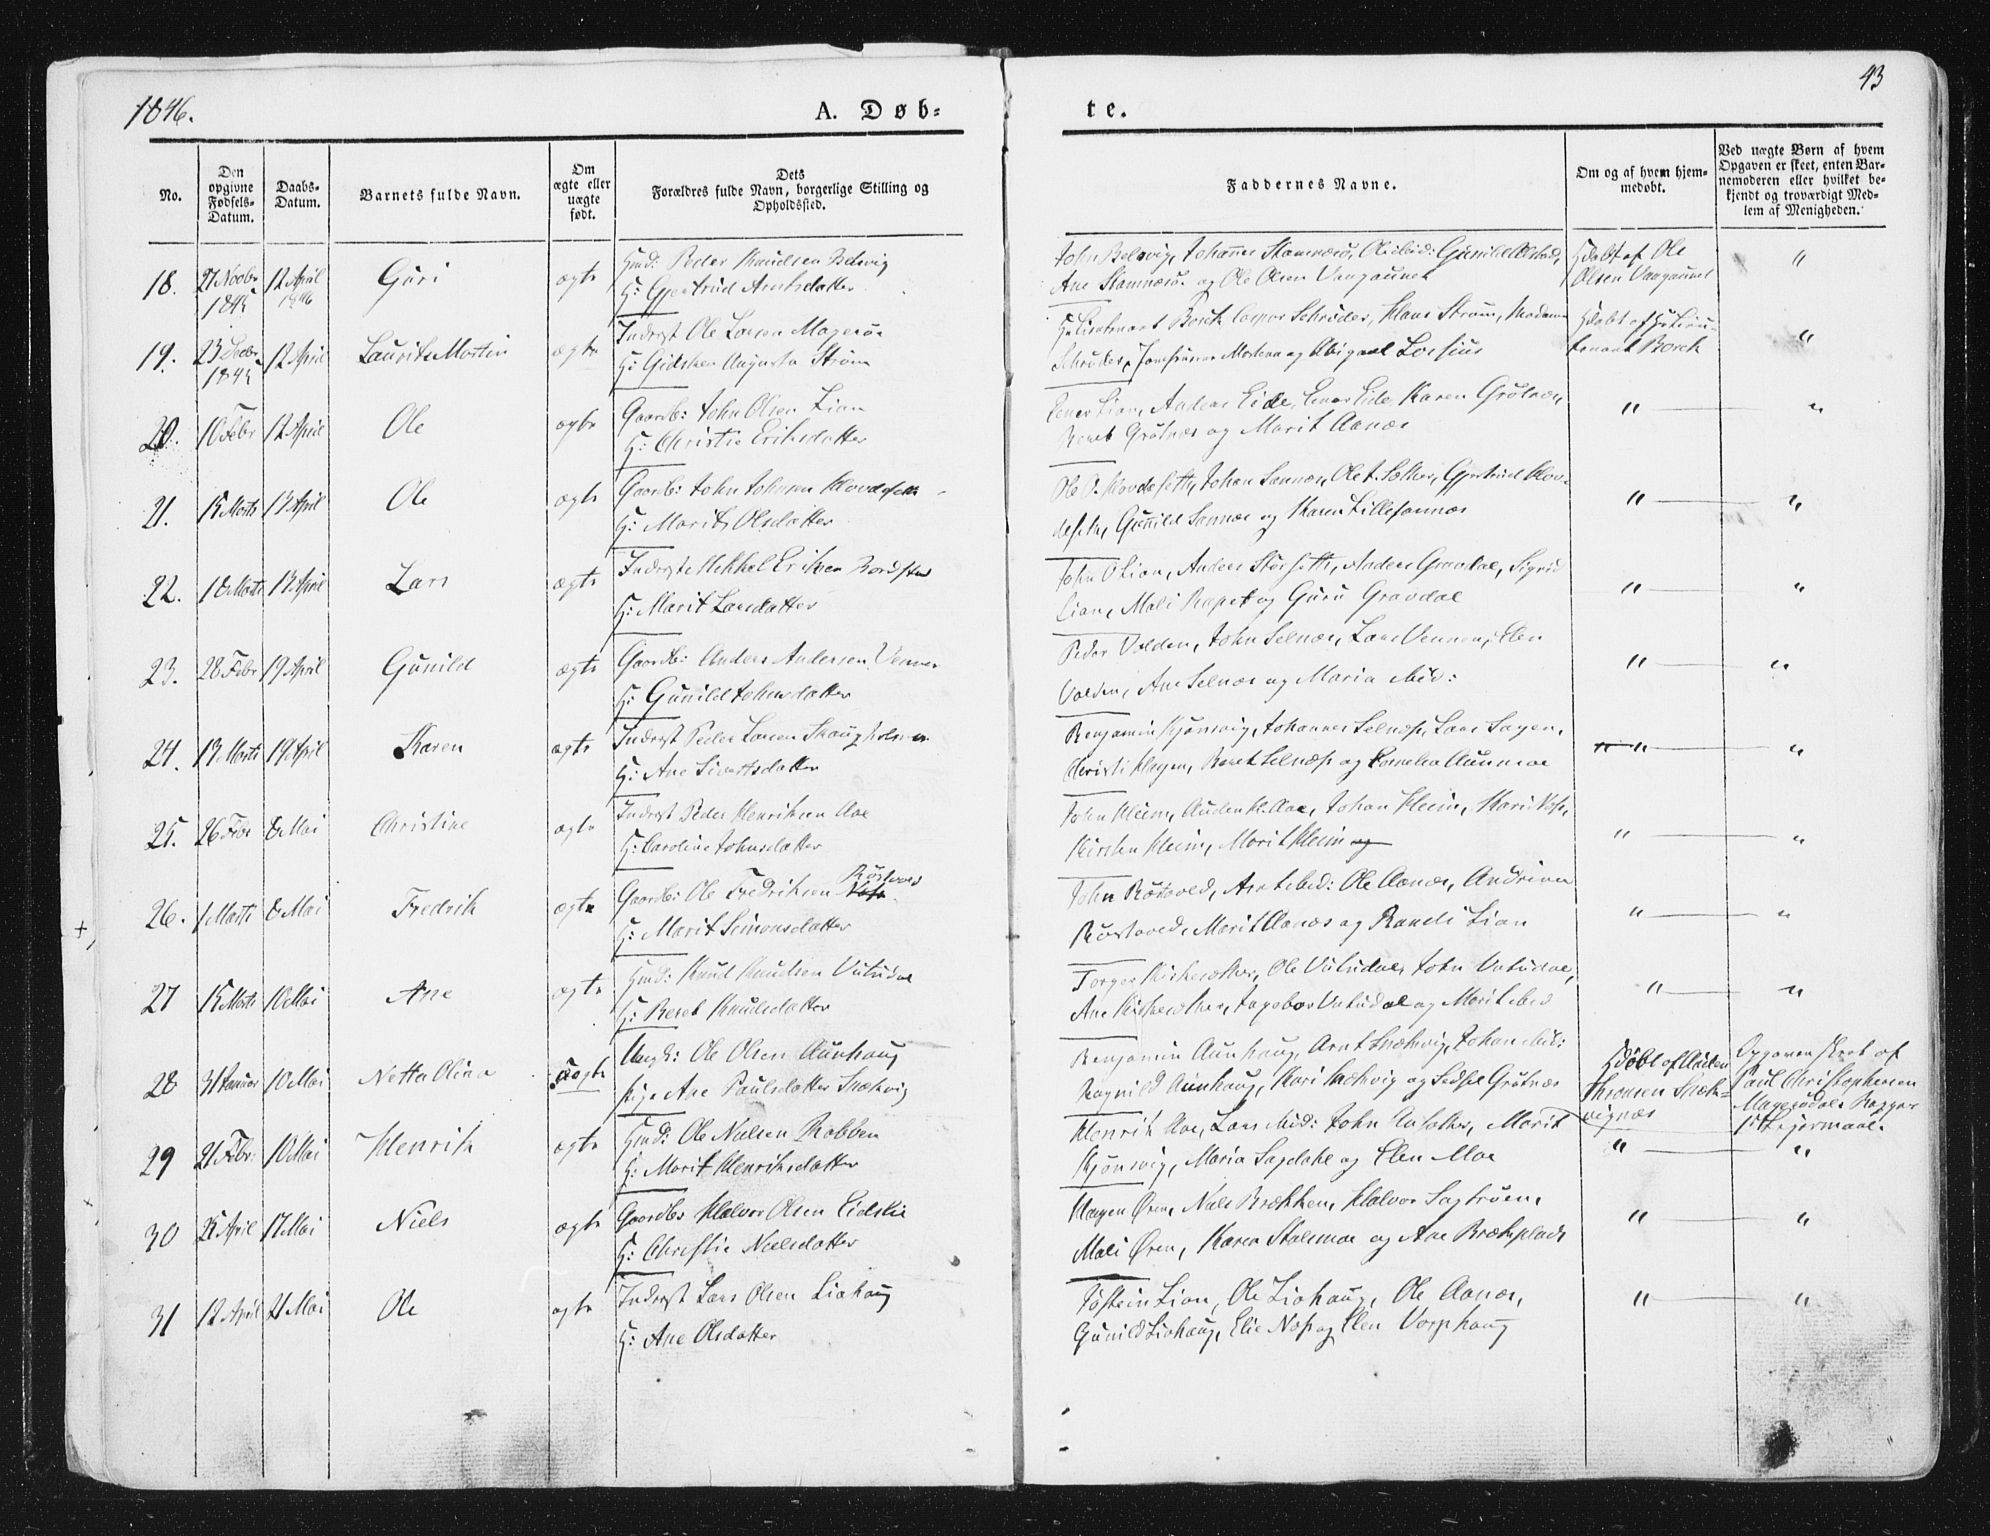 1846.
A. Døb-
te.
43
No.
Den opgivne Fødsels-Datum.
Daabs-Datum.
Barnets fulde Navn.
Om ægte eller uægte født.
Dets Forældres fulde Navn, borgerlige Stilling og Opholdssted.
Faddernes Navne.
Om og af hvem hjem-medøbt.
Ved uægte Børn af hvem Opgaven er skeet, enten Bar-nemoderen eller hvilket be-kjendt og troværdigt Med-lem af Menigheden.
18. 27 Novbr 1845 12 April 1846 Guri ægte Hmd: Peder Knudsen Belsvig
H: Gjertrud Arntsdatter
John Belsvig, Johannes Stamnæsø, Ole ibid: Gunild
Ane Stamnæsø og Ole Olsen Vangaunet
Hdøbt af Ole
Olsen Vangaunet
"
19. 23 Decbr 1845 12 April Laurits Martin ægte Inderst Ole Larsen Magerø
H: Gidsken Augusta Strøm
Lieutenant Borch, Caspar Schrøder, Klaus Strøm, Madame
Schrøder, Jomfruerne og Abigael Lossius
Hdøbt af Hr Lieu-
tenant Borch
"
20. 10 Febr 12 April Ole ægte Gaardb: John Olsen Lian
H: Christie Eriksdatter
Lian, Anders Eide, Eide, Karen Grøtnæs,
Beret Grøtnæs og Marit Aanæs
" "
21. 15 Marts 13 April Ole ægte Gaardb: John Johnsen
H: Marit Olsdatter
Ole O. Johan Sannæs, Ole Gjertrud
Gunild Sannæs og Karen Lillesannæs
" "
22. 10 Marts 13 April Lars ægte Inderst Mikkel Eriksen
H: Marit Larsdatter
John O Lian, Anders Anders Gravdal, Sigrid
Lian, Mali og Guru Gravdal
" "
23. 28 Febr 19 April Gunild ægte Gaardb: Anders Andersen Venner
H: Gunild Johnsdatter
Peder Volden, John Selnæs, Lars Vennen, Elen
Volden, Ane Selnæs og Maria ibid:
" "
24. 13 Marts 19 April Karen ægte Inderst Peder Larsen Skaugholmen
H: Ane Sivertsdatter
Benjamin Kjønsvig, Johannes Selnæs, Lars Sagen,
Christi Hagen, Beret Selnæs og Cornelia Aunmoe
" "
25. 26 Febr 8 Mai Christine ægte Inderst Peder Henriksen Aae
H: Caroline Johnsdatter
John Kleim, Auden K: Aae, Johan Kleim, Mari
Kirsten Kleim, Marit Kleim og
" "
26. 1 Marts 8 Mai Fredrik ægte Gaardb: Ole Fredriksen Røstvold
H: Marit Simonsdatter
John Røstvold, Arnt ibid: Ole Aanæs, Andrina
Røstvold, Marit Aanæs og Randi Lian
" "
27 15 Marts 10 Mai Ane ægte Hmd: Knud Knudsen Vutudal
H: Beret Knudsdatter
Torger Kirksæther, Ole Vutudal, John Vutudal,
Ane Kirksæther, Ingebor Vutudal og Marit ibid
" "
28 31 Januar 10 Mai Netta Olina uægte Ungk: Ole Olsen Aunhaug
Pige Ane Paulsdatter Snækvig
Benjamin Aunhaug, Arnt Snækvig, Johan ibid:
Ragnild Aunhaug, Kari Snækvig og Sedsel Grøtnæs
Hdøbt af Auden
Thronsen Snæk-
vignæs
Opgaven skeet af
Paul Christophersen
29 21 Febr: 10 Mai Henrik ægte Hmd: Ole Nielsen Robben
H: Marit Henriksdatter
Henrik Aae, Lars ibid: John Marit
Kjønsvig, Maria Sagdahl og Elen Moe
" "
30 25 April 17 Mai Niels ægte Gaardbr Halvor Olsen Eidslie
H: Christie Nielsdatter
Hagen Øren, Niels Brækken, Halvor Sagtrøen,
Mali Øren, Karen Stalsmoe og Ane Brækplads
" "
31 12 April 21 Mai Ole ægte Inderst Lars Olsen Liahaug
H: Ane Olsdatter
Tøstein Lian, Ole Liahaug, Ole Aanæs,
Gunild Liahaug, Elie Næs og Elen Vorphaug
" "